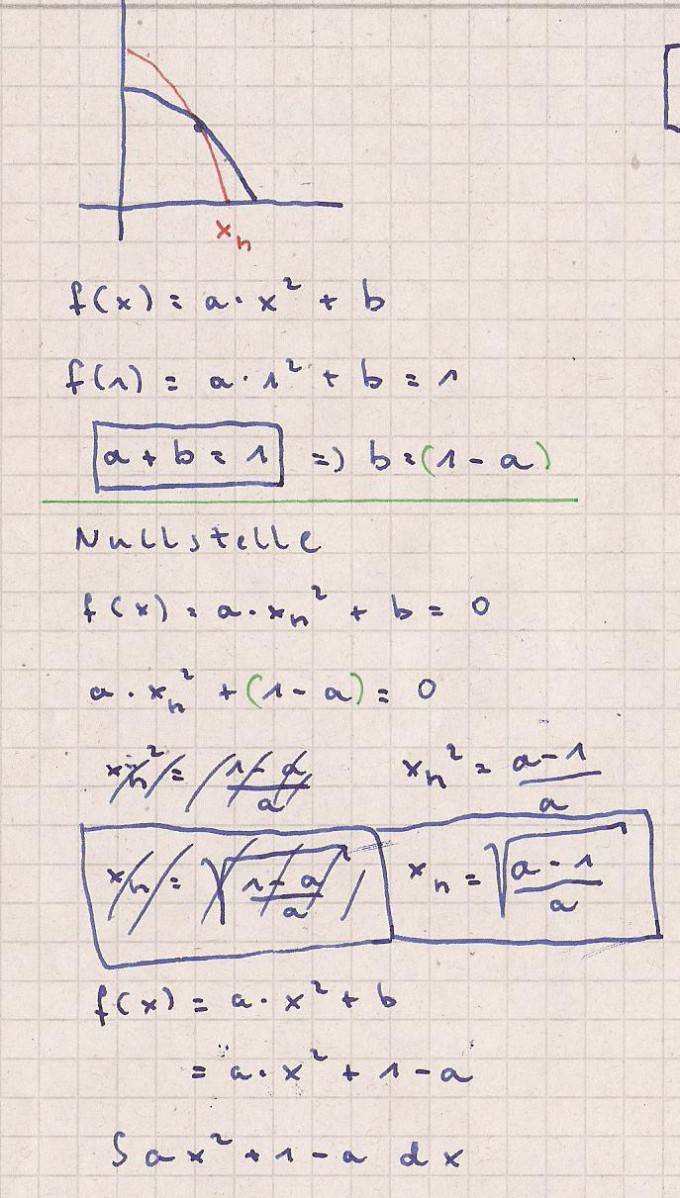 xₙ
f(x) = a · x² + b
f(1) = a · 1² + b = 1
a + b = 1 => b = (1 - a)
Nullstelle
f(x) = a · xₙ² + b = 0
a · xₙ² + (1 - a) = 0
xₙ² = (1 - a)/a xₙ² = (a - 1)/a
xₙ = √((1 - a)/a) xₙ = √((a - 1)/a)
f(x) = a · x² + b
= a · x² + 1 - a
∫ a x² + 1 - a dx